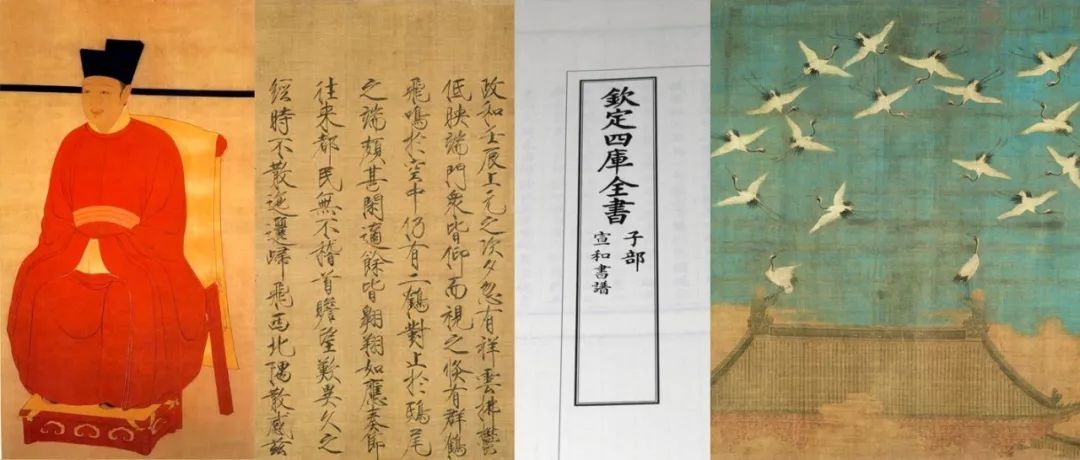 政和壬辰上元之次夕忽有祥雲拂鬱
低映端門衆皆仰而視之倐有群鶴
飛鳴於空中仍有二鶴對止於鴟尾
之端頗甚閑適餘皆翱翔如應奏節
往来都民無不稽首瞻望歎異久之
經時不散迤邐歸飛西北隅散感兹
欽定四庫全書
子部
宣和書譜